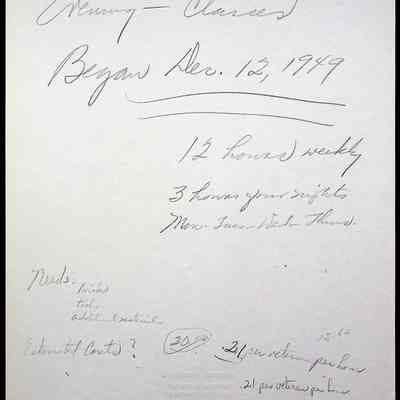 Evening - Classes
Began Dec. 12, 1949
12 hours weekly
3 hours four nights
Mon. Tues. Wed. Thurs.
Needs.
tools
additional materials
Estimated Costs ?
20.00
.21 per veteran per hour
.21 per veteran per hour